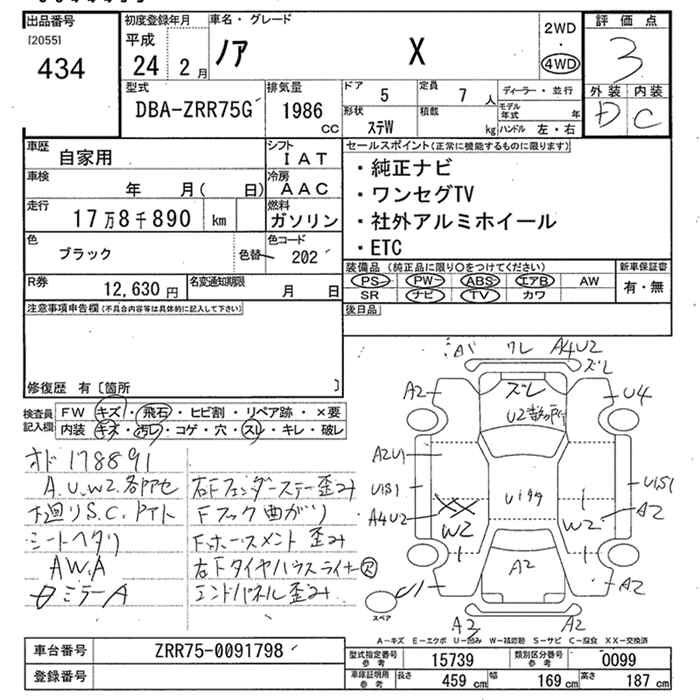 出品番号
[2055]
434
初度登録年月
平成
24 2 月
車名・グレード
ノア X
2WD
・
4WD
評価点
3
外装 内装
D C
型式
DBA-ZRR75G
排気量
1986
cc
ドア 5
定員 7 人
形状 ステW
積載 kg
ディーラー・並行
モデル年式 年
ハンドル 左・右
車歴 自家用
車検 年 月( 日)
走行 17万8千890 km
色 ブラック 色替
シフト IAT
冷房 AAC
燃料 ガソリン
色コード 202
セールスポイント(正常に機能するものに限ります)
・純正ナビ
・ワンセグTV
・社外アルミホイール
・ETC
装備品 (純正品に限り○をつけてください)
PS PW ABS エアB AW
SR ナビ TV カワ
新車保証書
有・無
R券 12,630 円
名変通知期限 月 日
後日品
注意事項申告欄(不具合内容等は具体的に記入して下さい)
修復歴 有〔箇所 〕
検査員記入欄
FW キズ・飛石・ヒビ割・リペア跡・×要
内装 キズ・汚レ・コゲ・穴・スレ・キレ・破レ
オド 178891
A.U.W2.各部
下廻りS.C.
シートヘタリ
AW.A
ミラーA
右Fフェンダーステー歪み
Fフック曲がり
F.ホースメント歪み
右Fタイヤハウスライナー
エンドパネル歪み
ワレ A4U2
ズレ
A2
U4
ズレ
U2
A2U1
U1S1
A4U2
XX
W2
U1S1
A2
W2
A2
A2
A2
A2
スペア
A－キズ E－エクボ U－凹み W－補修跡 S－サビ C－腐食 XX－交換済
車台番号 ZRR75-0091798
登録番号
型式指定番号 参考 15739
類別区分番号 参考 0099
車庫証明用 参考
長さ 459 cm
幅 169 cm
高さ 187 cm